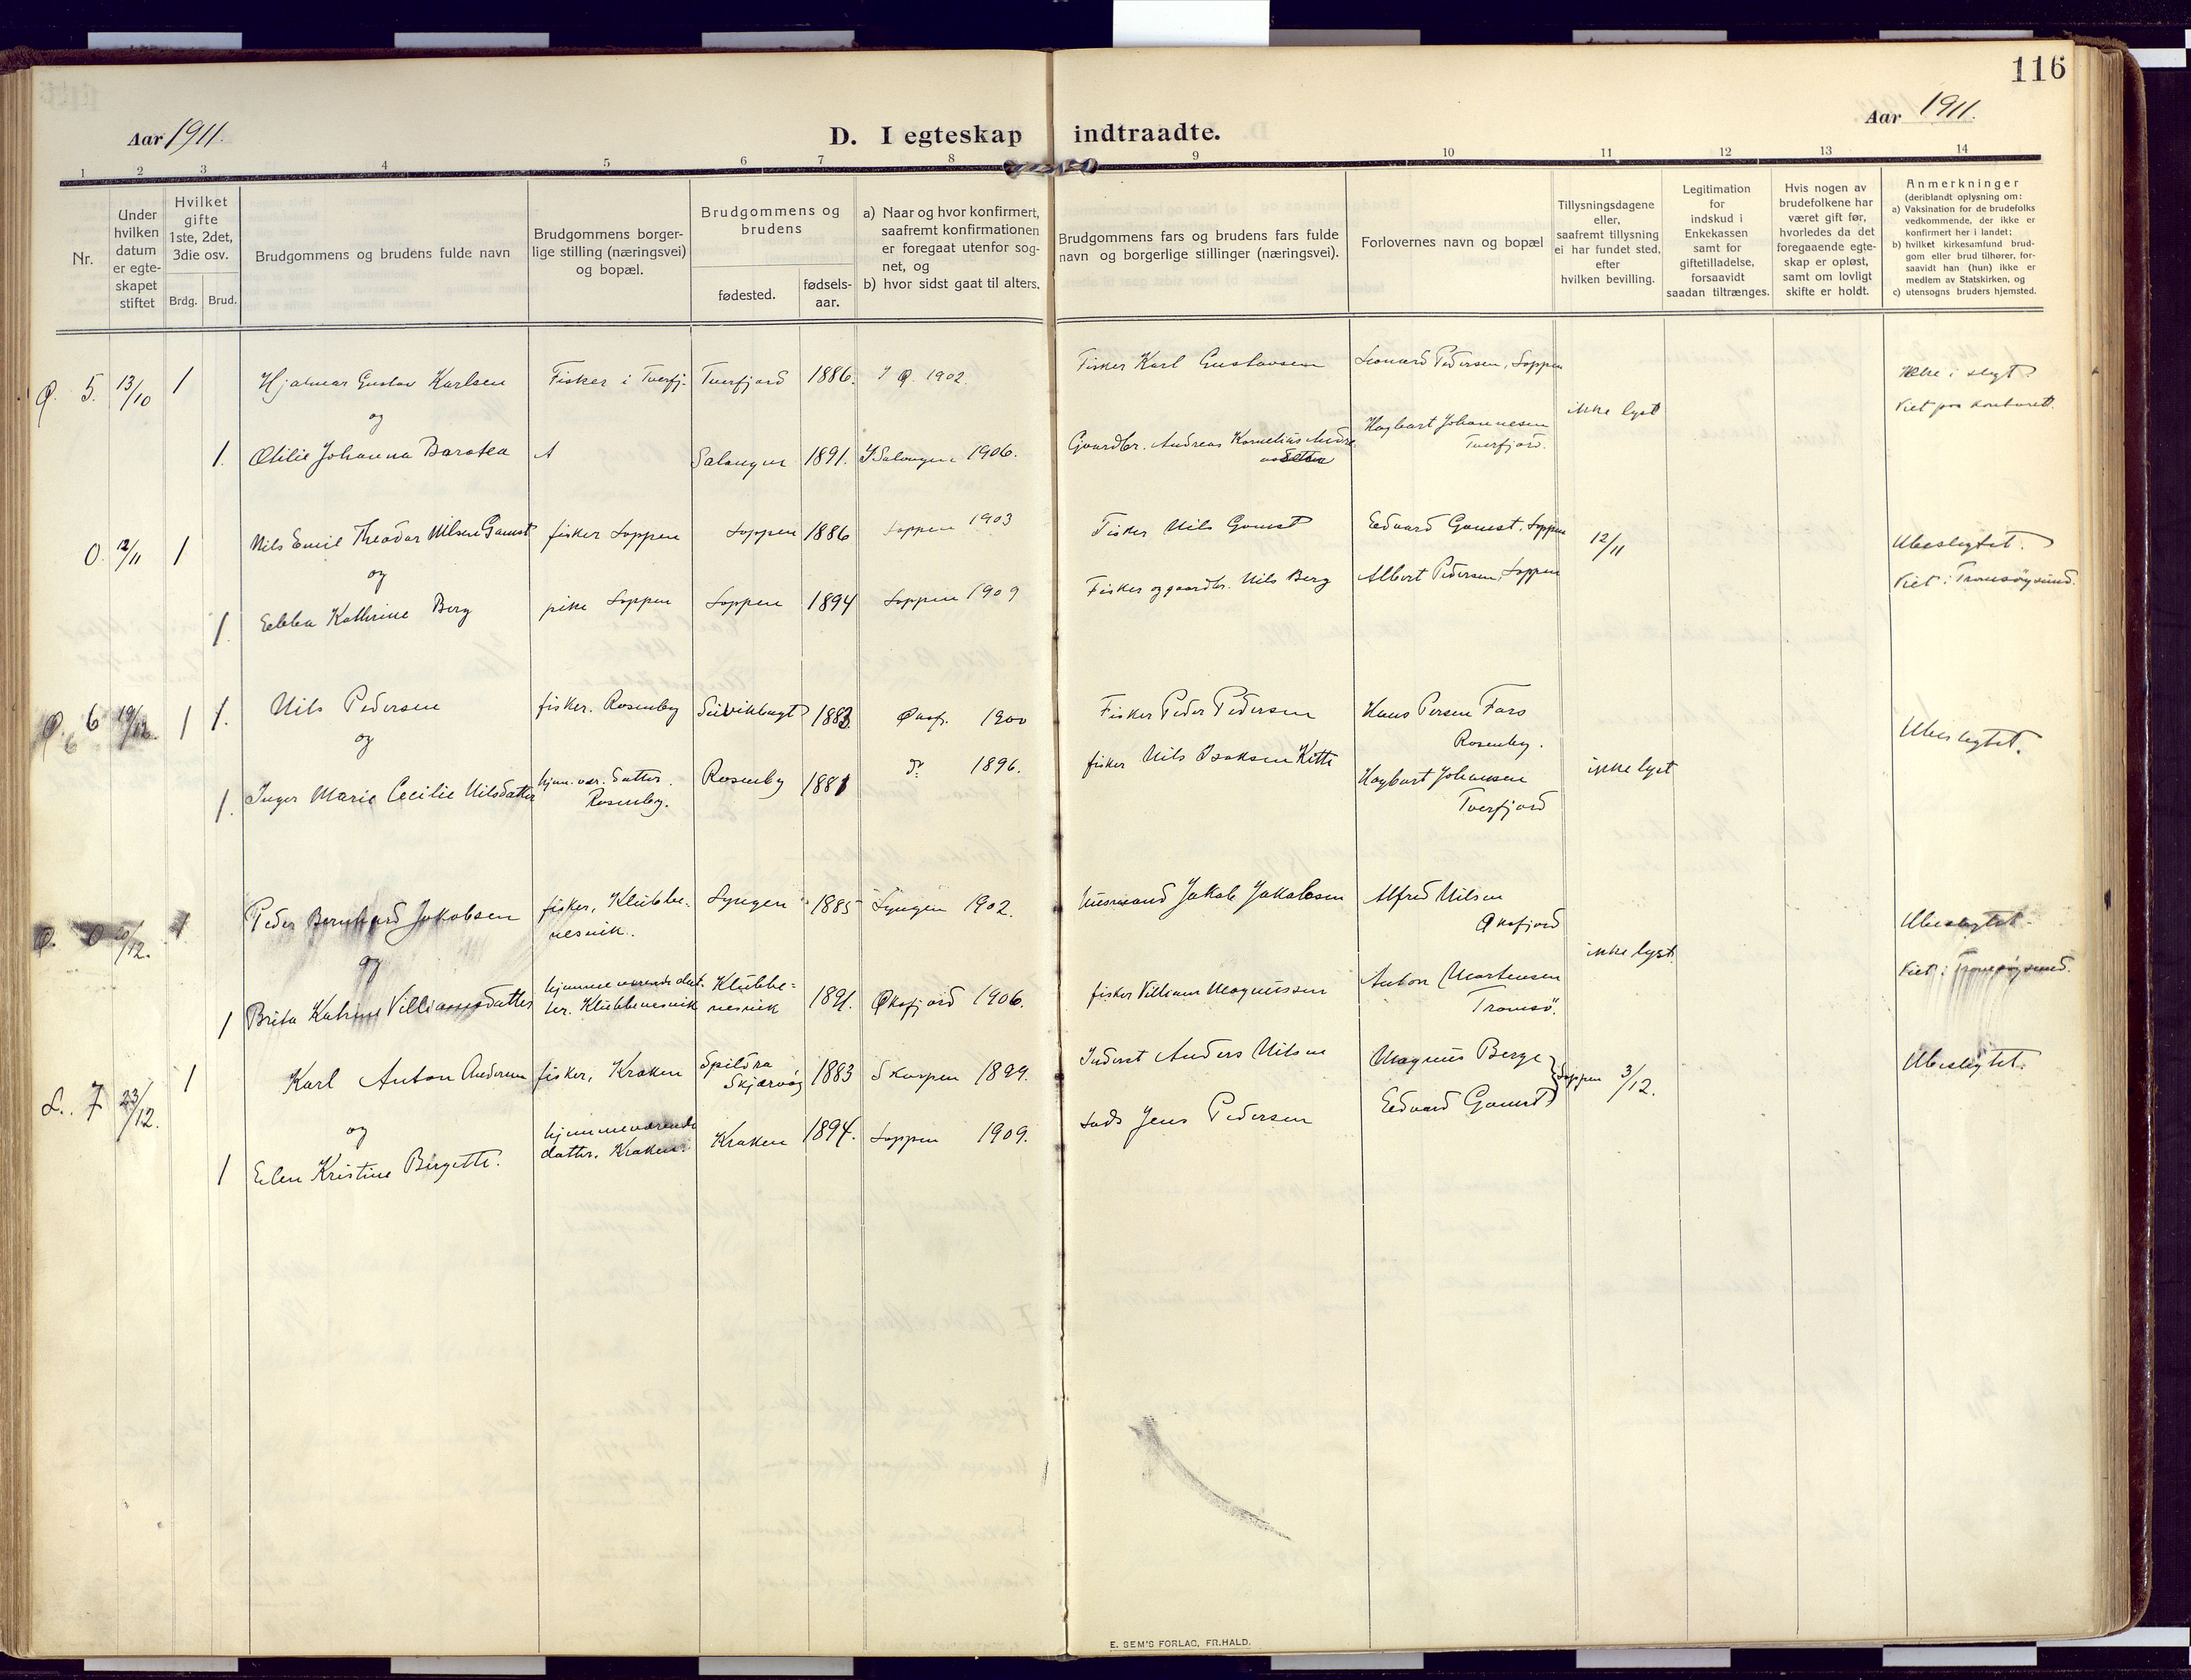 116
Aar 1911.
D. I egteskap indtraadte.
Aar 1911.
1 2 3 4 5 6 7 8 9 10 11 12 13 14
Nr.
Under hvilken datum er egte- skapet stiftet
Hvilket gifte 1ste, 2det, 3die osv.
Brdg. Brud.
Brudgommens og brudens fulde navn
Brudgommens borger- lige stilling (næringsvei) og bopæl.
Brudgommens og brudens
fødested.
fødsels- aar.
a) Naar og hvor konfirmert, saafremt konfirmationen er foregaat utenfor sog- net, og
b) hvor sidst gaat til alters.
Brudgommens fars og brudens fars fulde navn og borgerlige stillinger (næringsvei).
Forlovernes navn og bopæl
Tillysningsdagene eller, saafremt tillysning ei har fundet sted, efter hvilken bevilling.
Legitimation for indskud i Enkekassen samt for giftetilladelse, forsaavidt saadan tiltrænges.
Hvis nogen av brudefolkene har været gift før, hvorledes da det foregaaende egte- skap er opløst, samt om lovligt skifte er holdt.
Anmerkninger (deriblandt oplysning om:
a) Vaksination for de brudefolks vedkommende, der ikke er konfirmert her i landet;
b) hvilket kirkesamfund brud- gom eller brud tilhører, for- saavidt han (hun) ikke er medlem av Statskirken, og
c) utensogns bruders hjemsted.
Ø. 5. 13/10 1 Hjalmar Gustav Karlsen Fisker i Tverfj. Tverfjord 1886. I Ø. 1902. Fisker Karl Gustavsen Leonard Pedersen, Loppen Ikke i slegt
og ikke lyst Viet paa kontoret.
1. Otilie Johanna Baratea Salangen 1891. I Salangen 1906. Gaardbr. Andreas Kornelius Hagbart Johannesen Tverfjord.
0. 12/11 1 Nils Emil Theodor Nilsen Gamst fisker Loppen Loppen 1886 Loppen 1903 Fisker Nils Gamst Edvard Gamst, Loppen 12/11 Ubeslegtet.
og Viet i Tromsøysund.
1. Ebba Kathrine Berg pike Loppen Loppen 1894 Loppen 1909 Fisker og gaardbr. Nils Berg Albert Pedersen, Loppen
Ø. 6 19/12. 1 1. Nils Pedersen fisker. Rosenby 1883 Øksfj. 1900 Fisker Peder Pedersen Hans Persen Fars Rosenby. Ubeslegtet.
6
og
1. Inger Marie Cecilie Nilsdatter hjem. vær. datter. Rosenby. Rosenby 1881 do 1896. fisker Nils Isaksen Kitti Hagbart Johansen Tverfjord ikke lyst
Ø. 0 20/12. 1 Peder Bernhard Jakobsen fisker, Klubbe- nesvik. Lyngen 1885 Lyngen 1902. Husmand Jakob Jakobsen Alfred Nilsen Øksfjord Ubeslegtet.
og ikke lyst. Viet i Tromsøysund.
1 Brita Katrine Villiamsdatter hjemmeværende dat- ter. Klubbenesvik Klubbe- nesvik 1891. Øksfjord 1906. fisker Villiam Magnussen Anton Mortensen Tromsö.
L. 7 23/12. 1 Karl Anton Andersen fisker, Kraken Spildra Skjærvøy 1883 Skorpen 1899. Inderst Anders Nilsen Magnus Berge Loppen 3/12. Ubeslegtet.
og Edvard Gamst
1 Elen Kristine Birgette. hjemmeværende datter. Kraken. Kraken 1894. Loppen 1909. Lods Jens Pedersen
E. SEM'S FORLAG, FR.HALD.